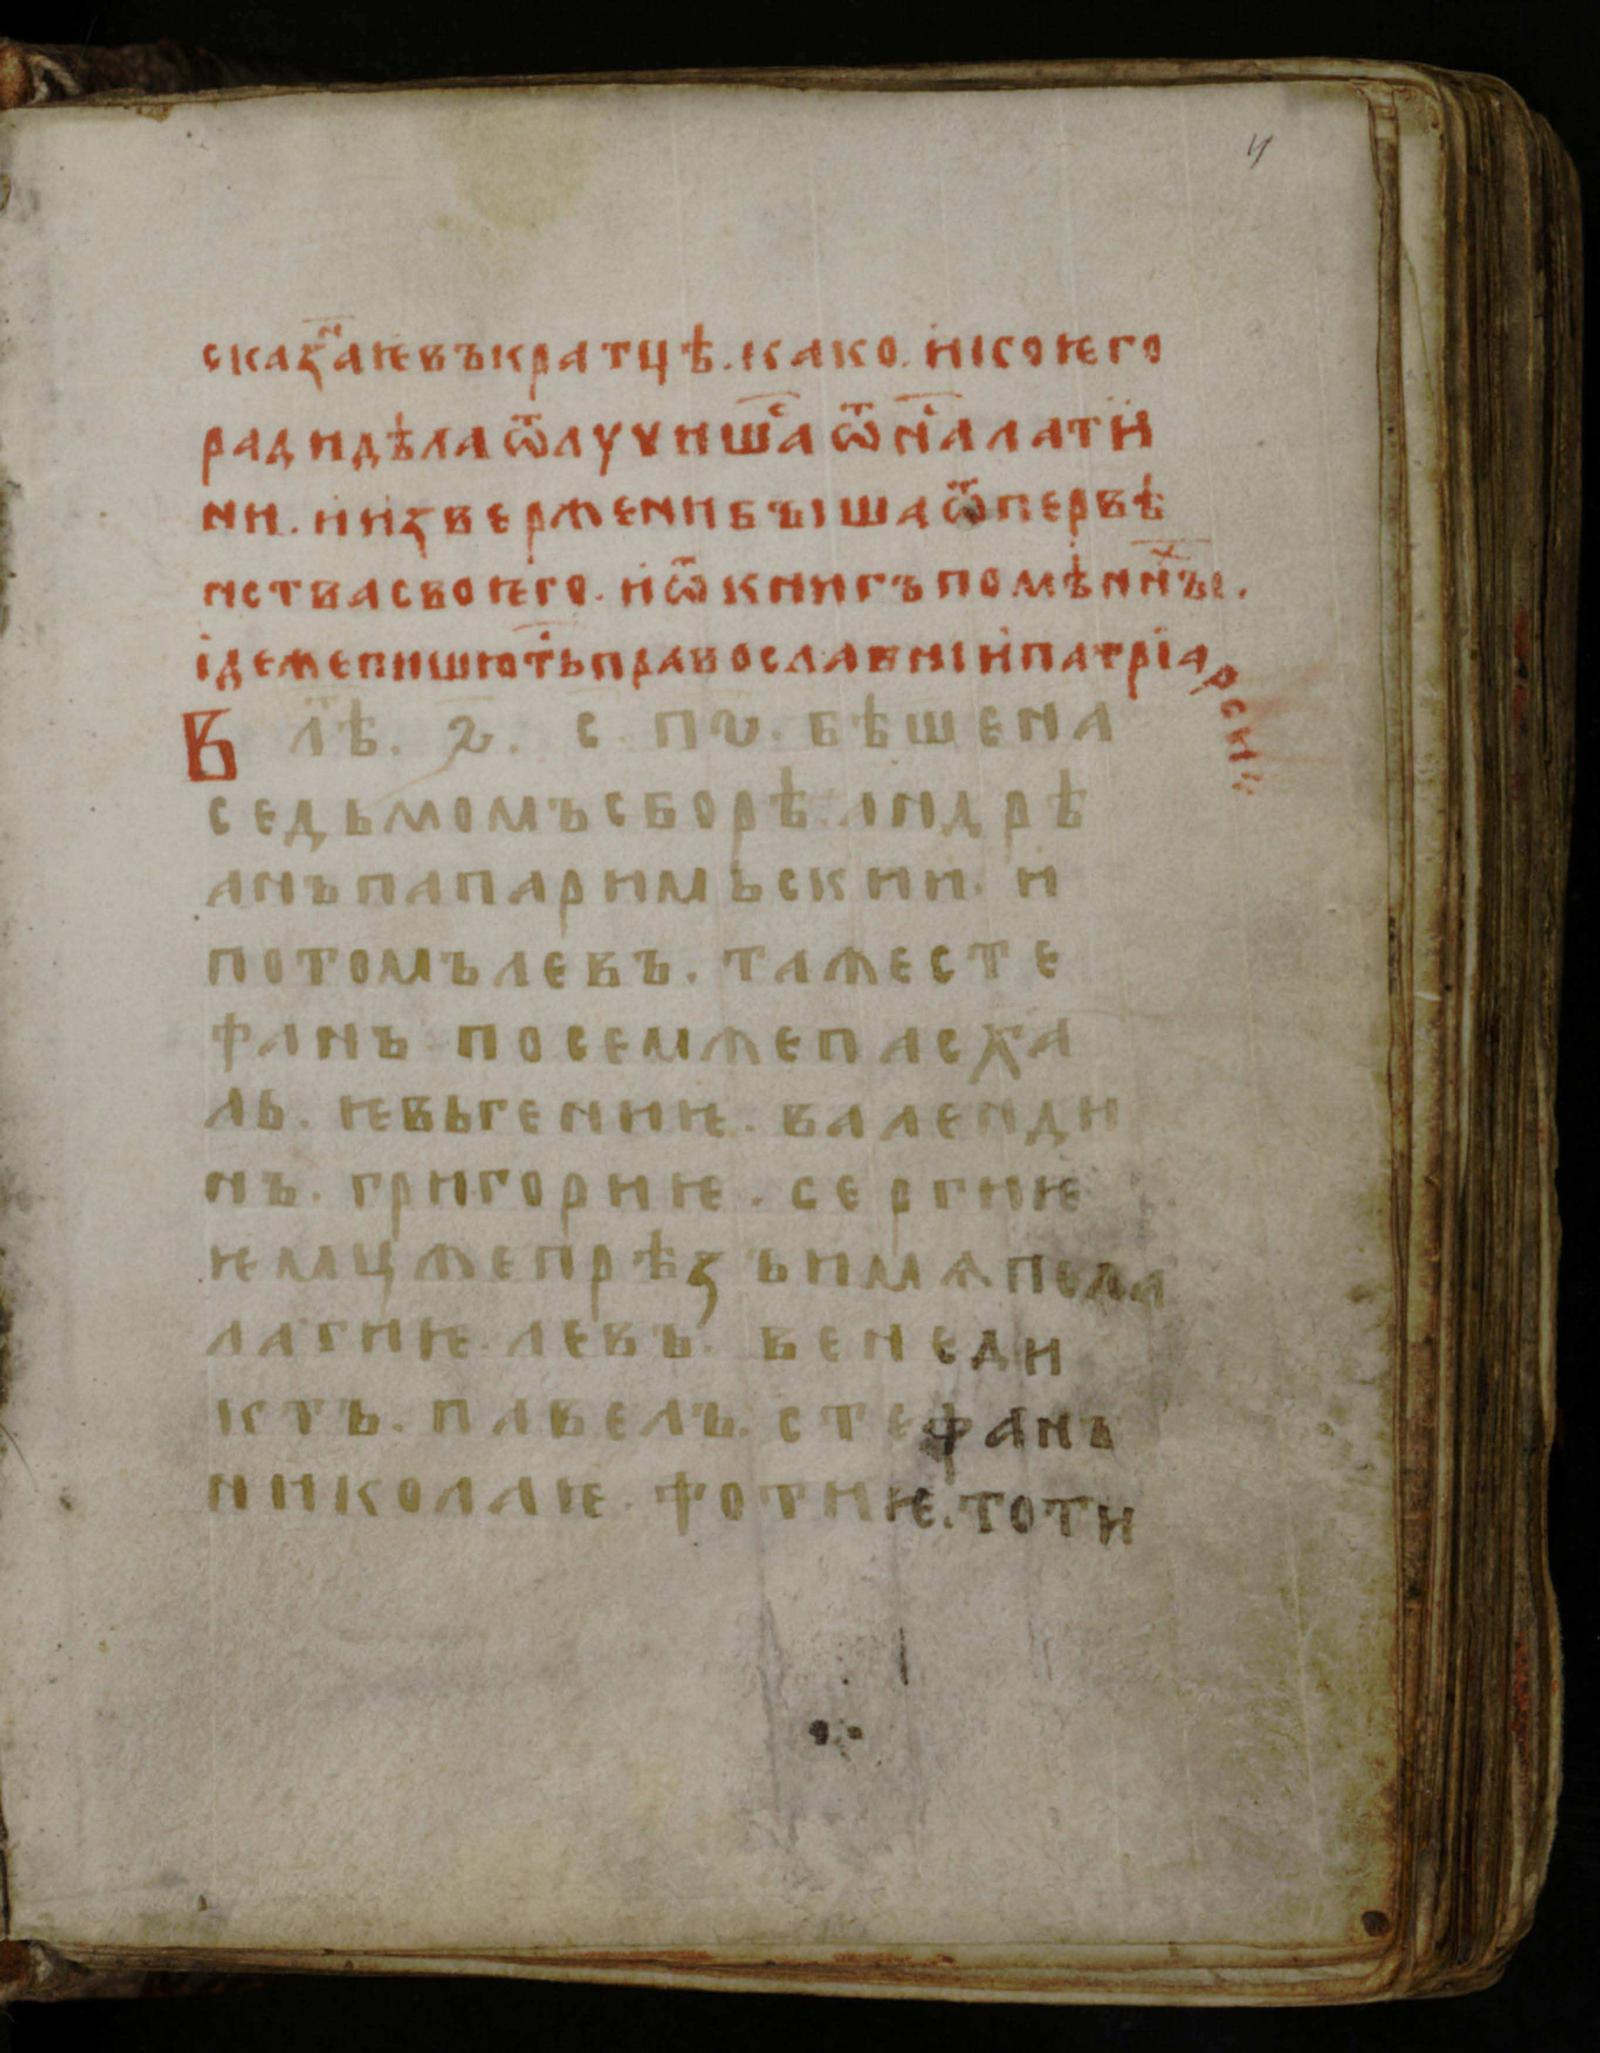 сказⷩ҇аѥвъкратцѣ. како. и҆ісоѥго
радидѣлаѿлꙋчишⷭ҇аѿнⷭ҇алати
ни. и҆и҆зверженибꙑшаѿпервѣ
нствасвоѥго. и҆ѿкнигъпомѣнⷯ҇нъі.
ідежепишютⷭ҇ьправославніи҆патріарсии
В лⷮѣ. ҂. с. пѵ. бѣшена
седьмомъсборѣ. андрѣ
анъпапаримьскии. и
потомълевъ. тажесте
фанъ посемжепасха
ль. ѥвьгениѥ. валенди
нъ. григориѥ. сергиѥ
ѥмцжепрѣзъимѧпела
лагиѥ. левъ. венеди
ктъ. павелъ. стефанъ
николаѥ. фотиѥ. тоти